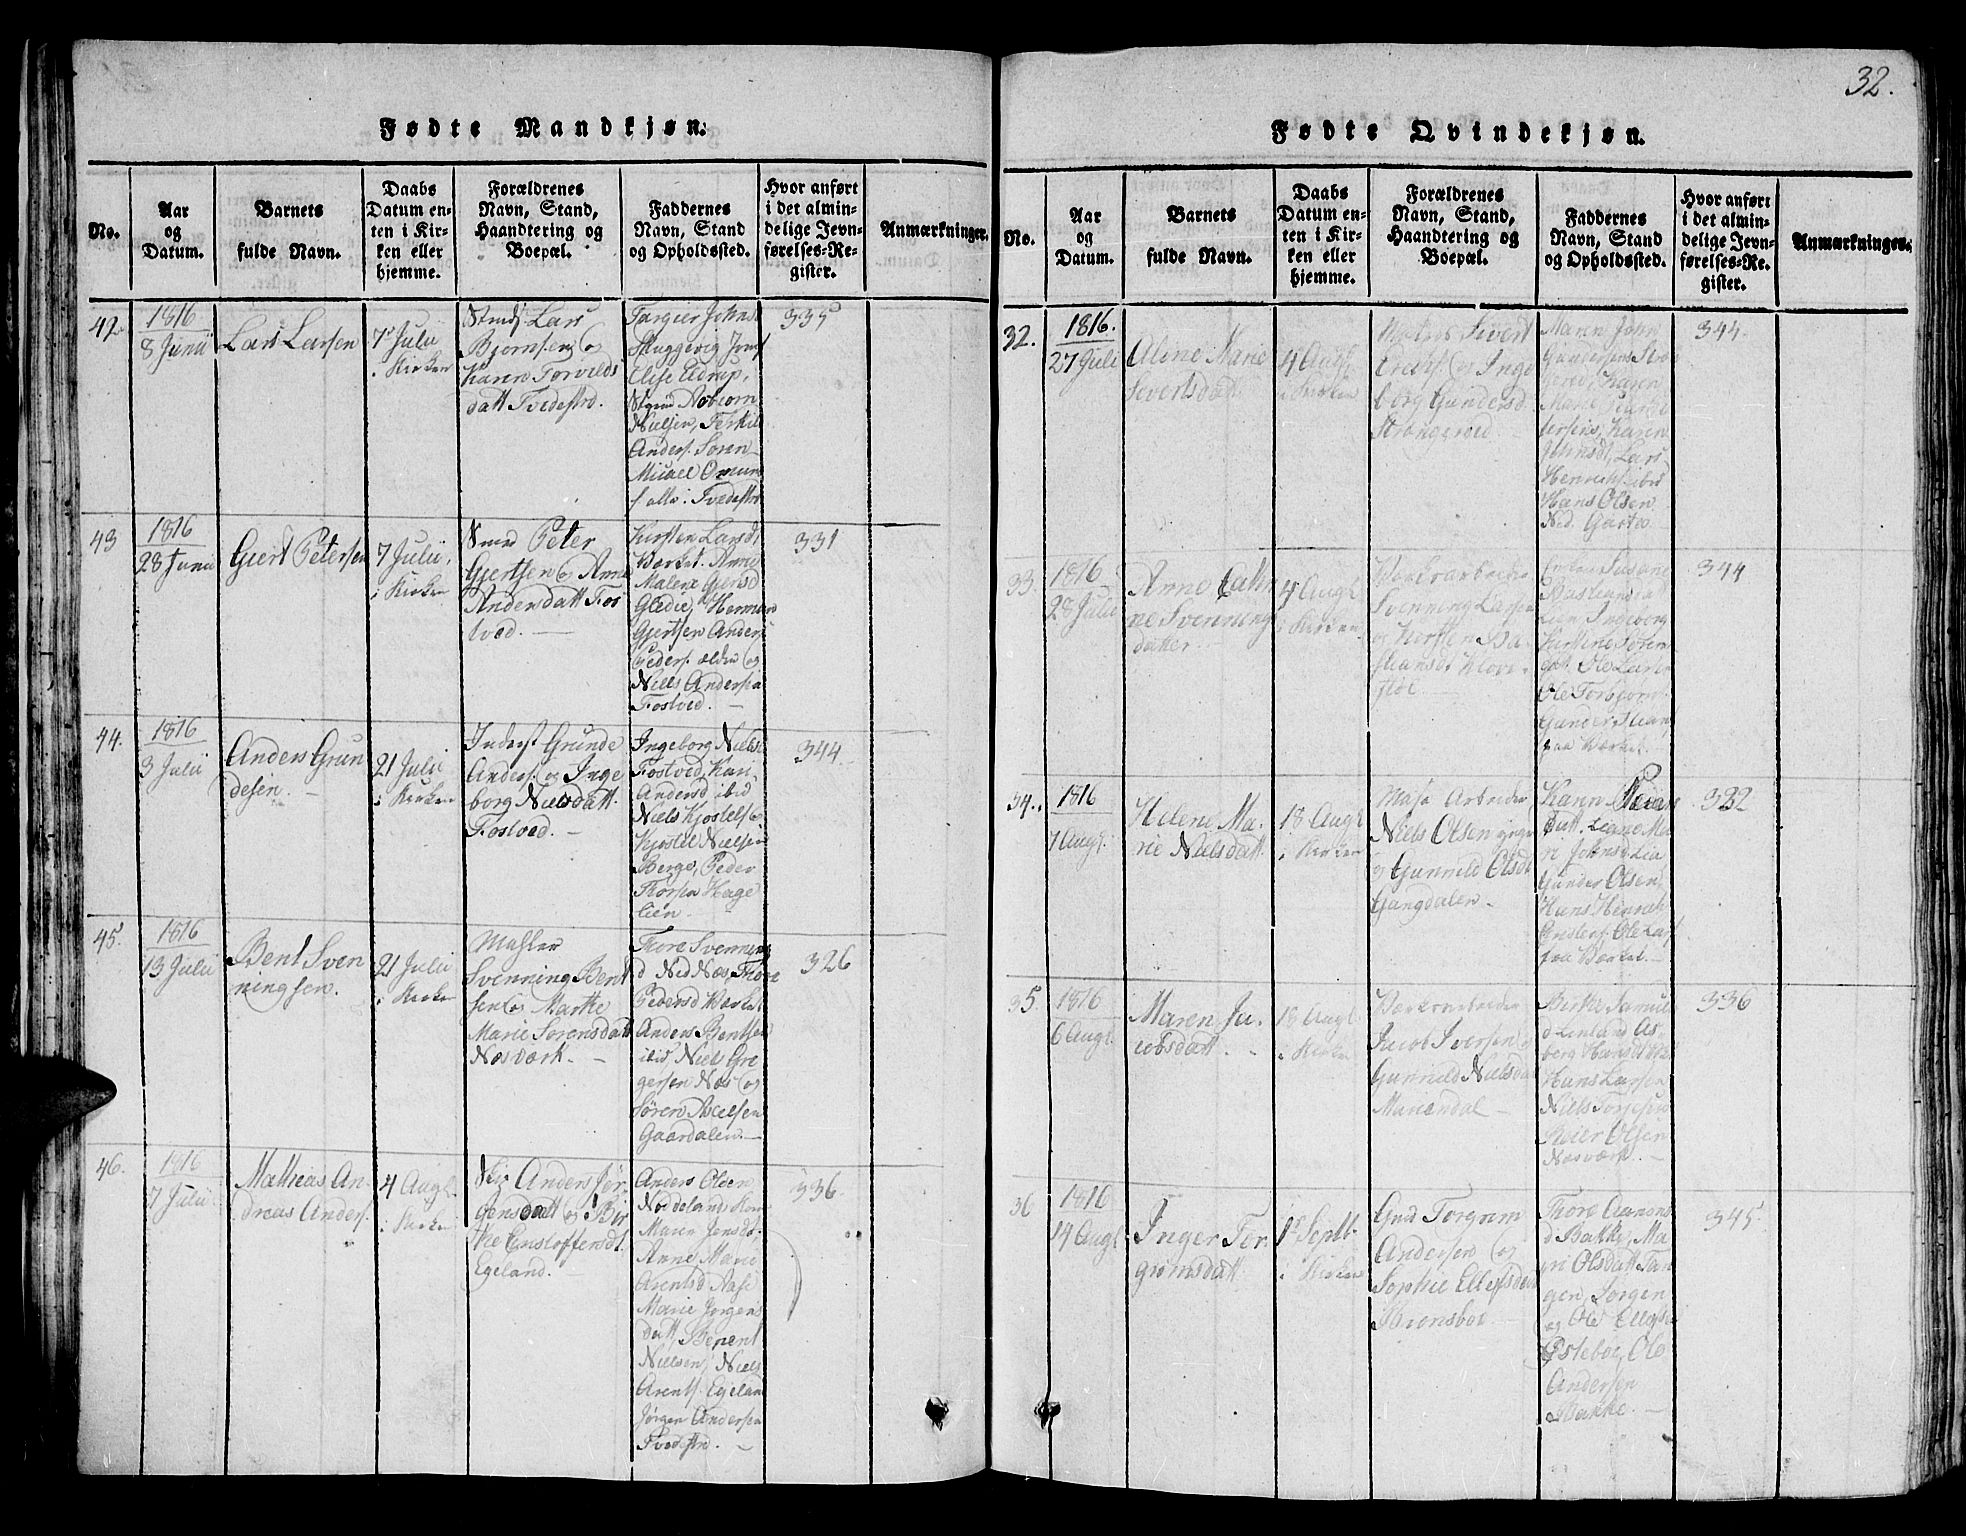 32.
Fødte Mandkjøn.
No.
Aar
og
Datum.
Barnets
fulde Navn.
Daabs
Datum en-
ten i Kir-
ken eller
hjemme.
Forældrenes
Navn, Stand,
Haandtering og
Boepæl.
Faddernes
Navn, Stand
og Opholdssted.
Hvor anført
i det almin-
delige Jevn-
førelses-Re-
gister.
Anmærkninger.
42
1816
8 Junii
Lars Larsen
7 Julii
i Kirken
Lars
Bjornsen og
Karen Torvilds
datt Tvedestrd.
Targier Johns
Elise Eldrup,
Nielsen, Terkil
Anders. Soren
Micael Omun
f alle i Tvedestrd
335
43
1816
28 Junii
Giert Petersen
7 Julii,
i Kirken
Smed Peter
Gjertsen og Anne
Andersdatt Fos
tved. —
Kirsten Larsd,
Værket. Anne
Malene Gjersd
Gledie, Herman
Gjertsen Anders
Peders. ældre og
Niels Andersen
Fostved. —
331
44.
1816
3 Julii
Anders Grun
desen. —
21 Julii
i Kirken
Inderst Grunde
Anders. og Inge
borg Nielsdatt.
Fostved. —
Ingeborg Nielsd
Fostved, Kari
Andersd ibid
Niels Kjostels og
Kjostel Nielsen
Berge, Peder
Thorsen Hage
lien.
344
45.
1816
13 Julii
Bent Sven
ningsen.
21 Julii
i Kirken
Svenning Bent
sen og Marthe
Marie Sorensdatt
Næsværk. —
Thore Svenning
d Ned Næs, Thore
Pedersd Værket
Anders Bentsen
ibid, Niels Gre
gersen Næs og
Søren Axelsen
Gaardalen. —
326
46.
1816
7 Julii
Mathias An-
dreas Anders.
4 Augl.
i Kirken
Anders Jør
gensdatt og Bir
the Cristoffersdt
Egeland. —
Anders Olsen
Noddeland
Maren Jensd.
Anne Marie
Arentsd Aase
Marie Jorgens
datt, Berent
Nielsen, Niels
Arents. Egeland
Jørgen Andersen
Tvedestrd. —
336
Fødte Qvindekjøn.
No.
Aar
og
Datum.
Barnets
fulde Navn.
Daabs
Datum en-
ten i Kir-
ken eller
hjemme.
Forældrenes
Navn, Stand,
Haandtering og
Boepæl.
Faddernes
Navn, Stand
og Opholdssted.
Hvor anført
i det almin-
delige Jevn-
førelses-Re-
gister.
Anmærkninger.
32.
1816.
27 Juli
Alene Marie
Sivertsdatt
4 Augl.
i Kirken
Sivert
og Inge
borg Gundersd
Strængereid
Maren John
Gundersens
Karen
Marie
Karen
Johnsd, Lars
Henrichs. ibid
Hans Olsen
Ned. Garta
344.
33.
1816
28 Julii
Anne Cathri
ne Svennings
datter
4 Augl
i Kirken
Værksarbeider
Svenning Larsen
og Kirsten Ba
stiansdt
Susane
Bastiansd
Lien, Ingeborg
Kirstine Soren
datt, Ole Larsen
Ole Torbjorn
Gunder
paa Værket
344
34.
1816
7 Augl.
Helene Ma-
rie Nielsdatt.
18 Augl
i Kirken
Mase Arbeider
Niels Olsen
og Gunnild Olsdt
Gangdalen —
Datt. Liane Ma
Johnsd Lia
Gunder Olsen,
Hans Henrich
Ole Lars
paa Værket. —
332
35.
1816
6 Augl.
Maren Ja-
cobsdatt.
18 Augl
i Kirken
Værksarbeider
Jacob Iversen og
Gunnild Nielsda
Mariendal —
Berthe Samuels
d Lenland As
berg Hansdt
Hans Larsen
Niels Torjesen
Olsen
Næsværk. —
336
36
1816
14 Augl.
Inger Tor
grimsdatt
1 Septb.
i Kirken
Gmd Torgrim
Andersen og
Sophie Ellefsdatt
Thore Aanons
d Bakke, Ma
ri Olsdatt Tan
gen, Jorgen
og Ole Ellefsen
Østeboe, Ole
Andersen
Bakke. —
345.